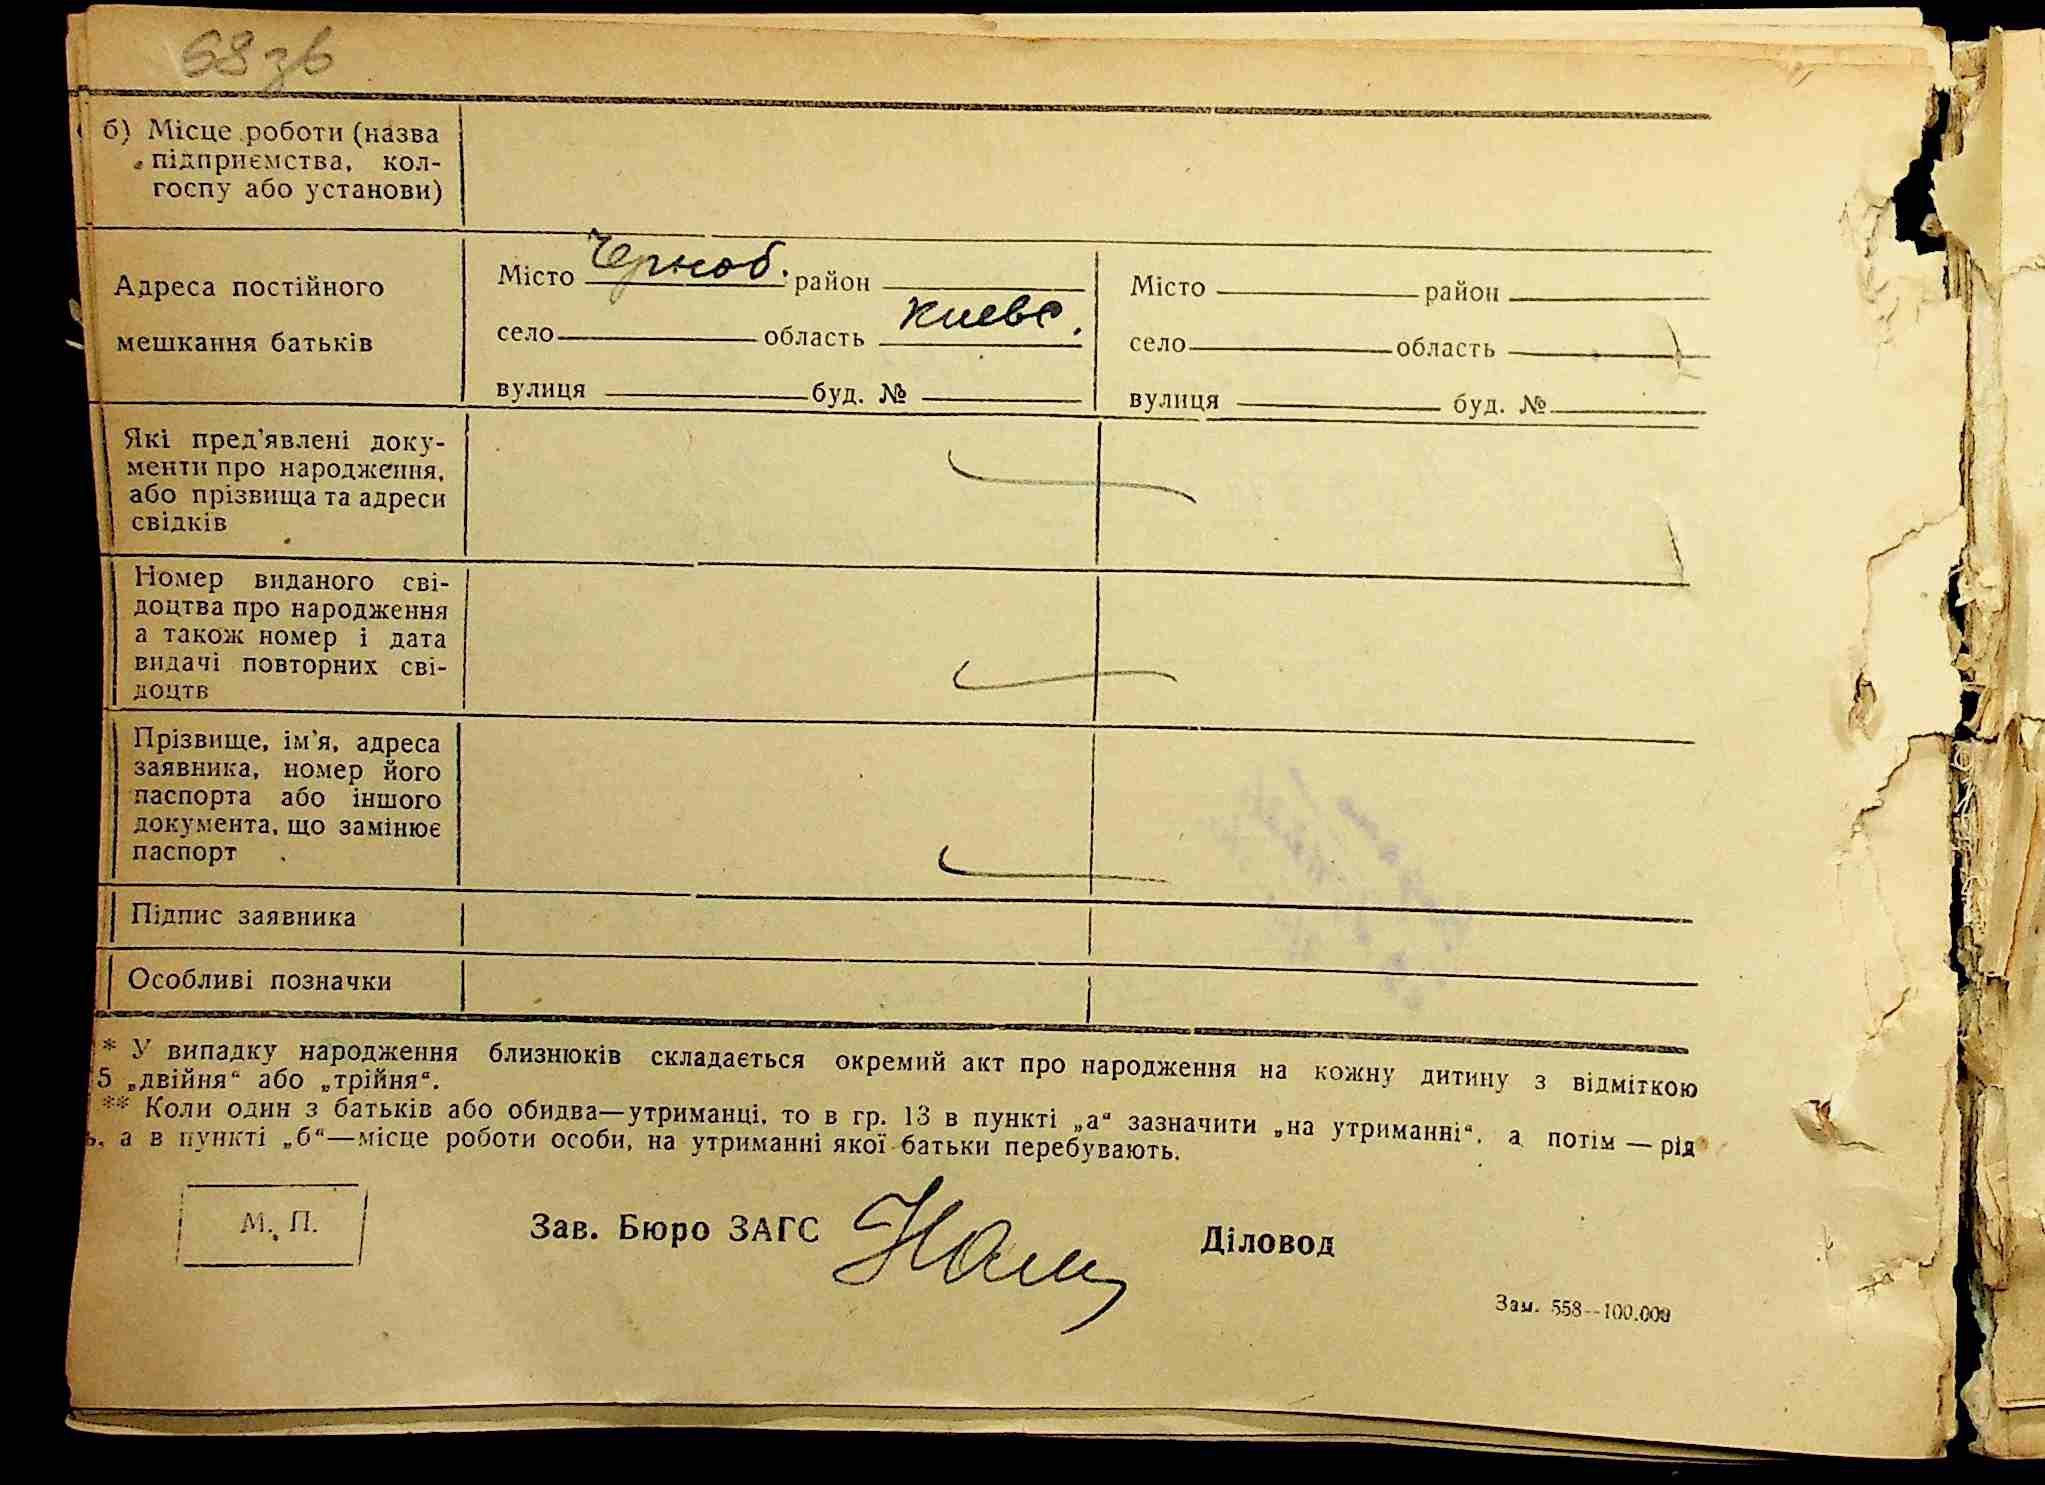 68 зв
б) Місце роботи (назва
підприємства, кол-
госпу або установи)
Адреса постійного
мешкання батьків
Місто Черноб. район
село область Киевс.
вулиця буд. №
Місто район
село область
вулиця буд. №
Які пред'явлені доку-
менти про народження,
або прізвища та адреси
свідків
Номер виданого сві-
доцтва про народження
а також номер і дата
видачі повторних сві-
доцтв
Прізвище, ім'я, адреса
заявника, номер його
паспорта або іншого
документа, що замінює
паспорт
Підпис заявника
Особливі позначки
* У випадку народження близнюків складається окремий акт про народження на кожну дитину з відміткою
5 „двійня“ або „трійня“.
** Коли один з батьків або обидва—утриманці, то в гр. 13 в пункті „а“ зазначити „на утриманні“, а потім — рід
ь, а в пункті „б“—місце роботи особи, на утриманні якої батьки перебувають.
М. П.
Зав. Бюро ЗАГС
Діловод
Зам. 558--100.000